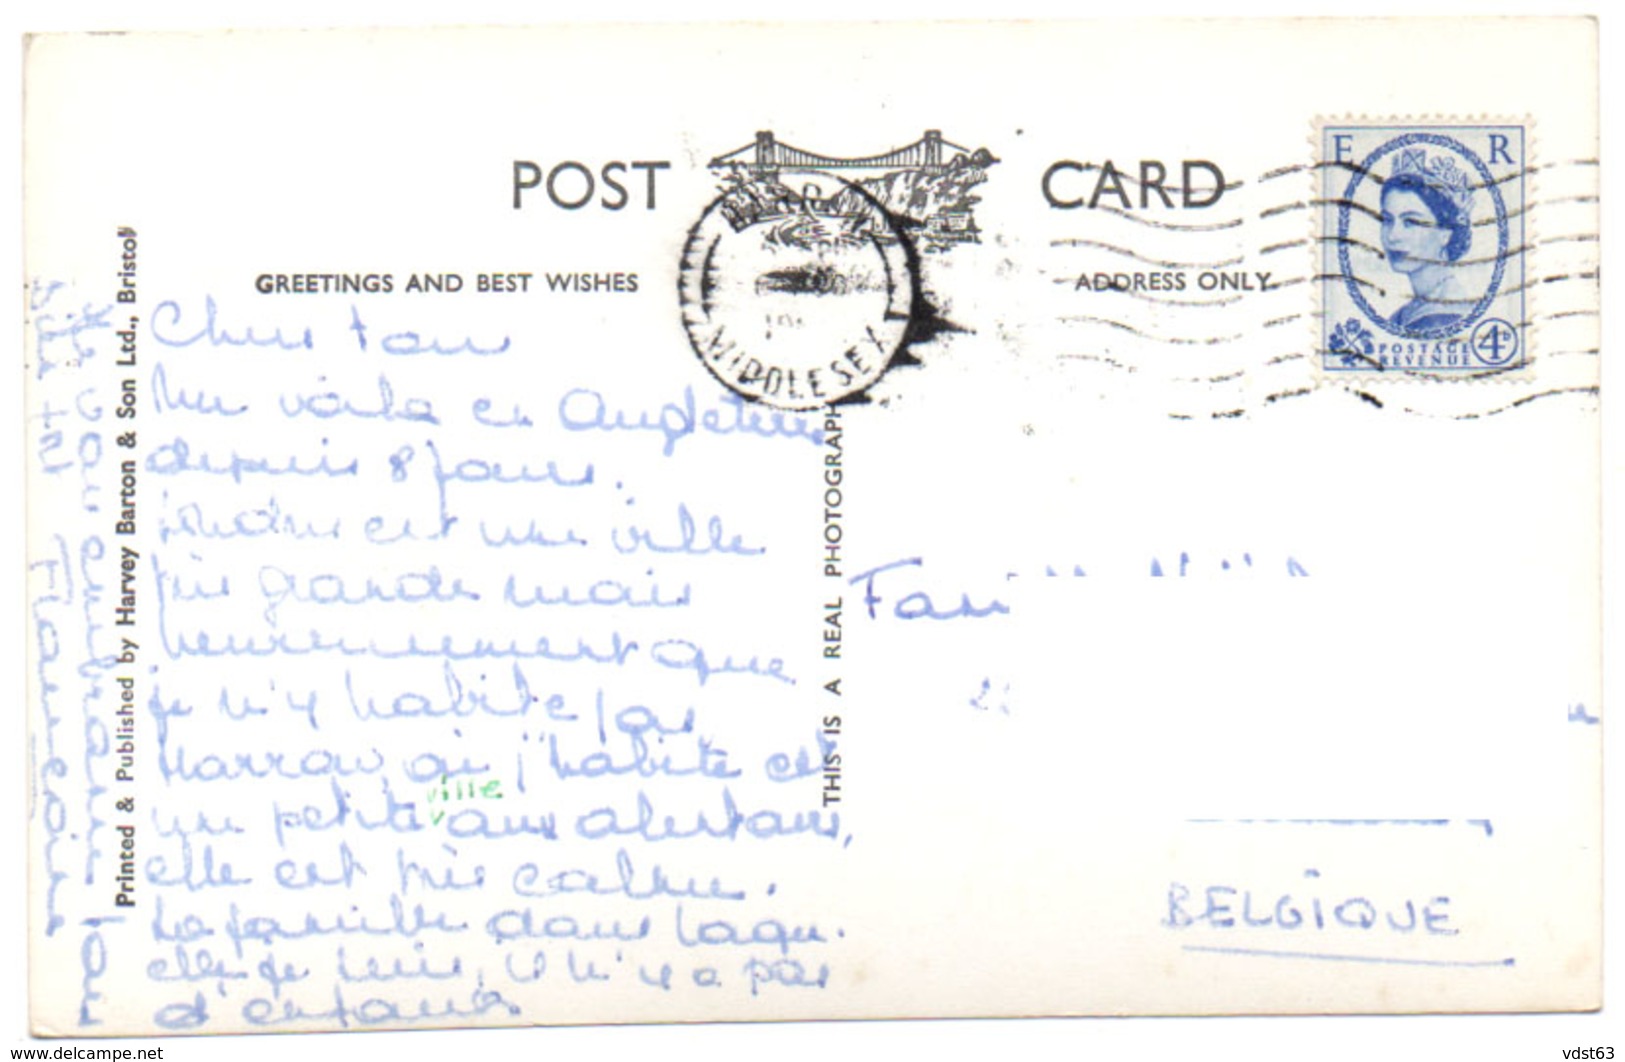 POST CARD
GREETINGS AND BEST WISHES
ADDRESS ONLY
HARROW
MIDDLESEX
E R
POSTAGE
REVENUE
4D
Printed & Published by Harvey Barton & Son Ltd., Bristol
THIS IS A REAL PHOTOGRAPH
Chers tous
Me voilà en Angleterre
depuis 8 jours.
Londres est une ville
très grande mais
heureusement que
je n'y habite pas
Harrow où j'habite est
une petite ville aux alentours,
elle est très calme.
La famille dans laqu-
elle je suis, il n'y a pas
d'enfants
Je vous embrasse tous
Françoise
Fam
BELGIQUE
www.delcampe.net
vdst63